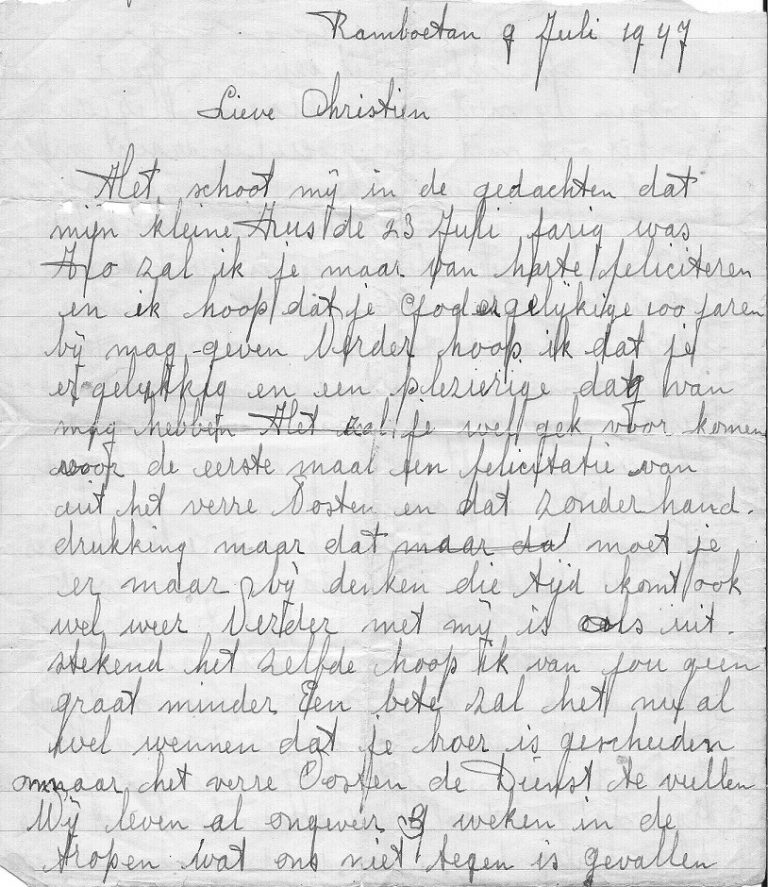 Ramboetan 9 Juli 1947
Lieve Christien
Het schoot mij in de gedachten dat
mijn kleine Zus de 23 Juli jarig was
Zo zal ik je maar van harte feliciteren
en ik hoop dat je God gelijkige 100 jaren
bij mag geven Verder hoop ik dat je
er gelukkig en een plezierige dag van
mag hebben Het zal je wel gek voor komen
voor de eerste maal een felicitatie van
uit het verre Oosten en dat zonder hand-
drukking maar dat maar da moet je
er maar bij denken die tijd komt ook
wel weer Verder met mij is als uit-
stekend het zelfde hoop ik van jou geen
graat minder Een bete zal het nu al
wel wennen dat je broer is gescheiden
naar het verre Oosten de Dienst te vullen
Wij leven al ongeveer 9 weken in de
tropen wat ons niet tegen is gevallen